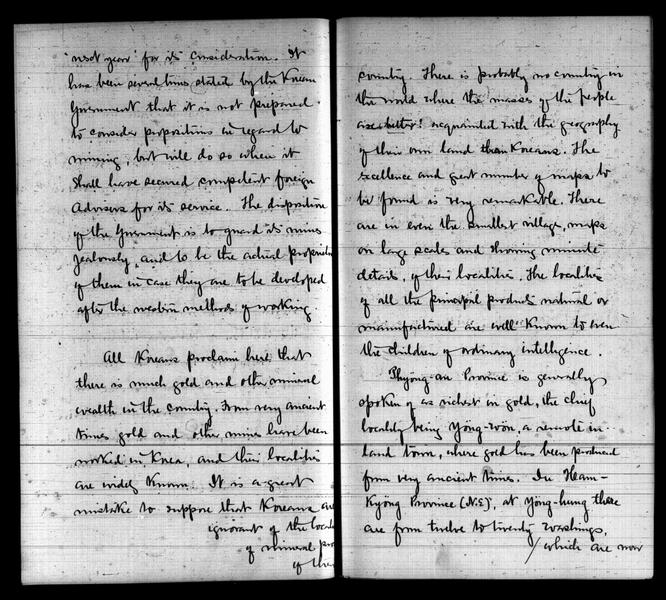 next year" for its consideration. It
has been several times stated by the Korean
Government that it is not prepared
to consider propositions in regard to
mining, but will do so when it
shall have secured competent foreign
Advisers for its service. The disposition
of the Government is to guard its mines
jealously, and to be the actual proprietor
of them in case they are to be developed
after the western methods of working
All Koreans proclaim here that
there is much gold and other mineral
wealth in the country. From very ancient
times gold and other mines have been
worked in Korea, and their localities
are widely known. It is a great
mistake to suppose that Koreans are
ignorant of the
of mineral
of
country. There is probably no country in
the world where the masses of the people
are better acquainted with the geography
of their own land than Koreans. The
excellence and great number of maps to
be found is very remarkable. There
are in even the smallest village, maps
on large scales and showing minute
details, of their localities. The localities
of all the principal products natural or
manufactured are well known to even
the children of ordinary intelligence.
Province is generally
spoken of as richest in gold, the chief
locality being a remote in-
land town, where gold has been produced
from very ancient times. In Ham-
Kyöng Province (N.E.), at Yöng-hung there
are from twelve to twenty washings,
which are now